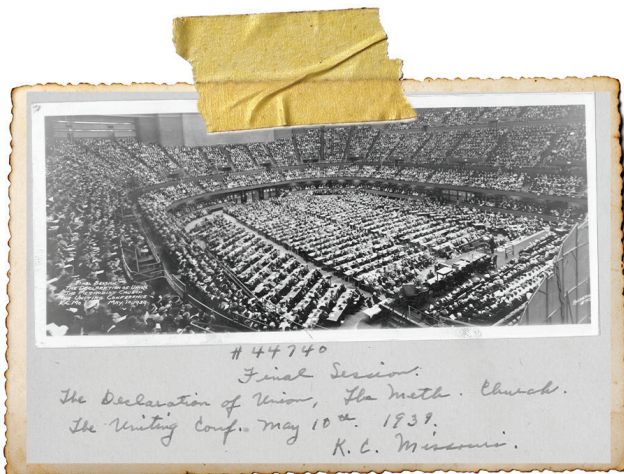 FINAL SESSION
THE DECLARATION OF UNION
THE METHODIST CHURCH
THE UNITING CONFERENCE
K.C. MO. MAY, 10, 1939.
#44740
Final Session.
The Declaration of Union, The Meth. Church.
The Uniting Conf. May 10th. 1939.
K. C. Missouri.